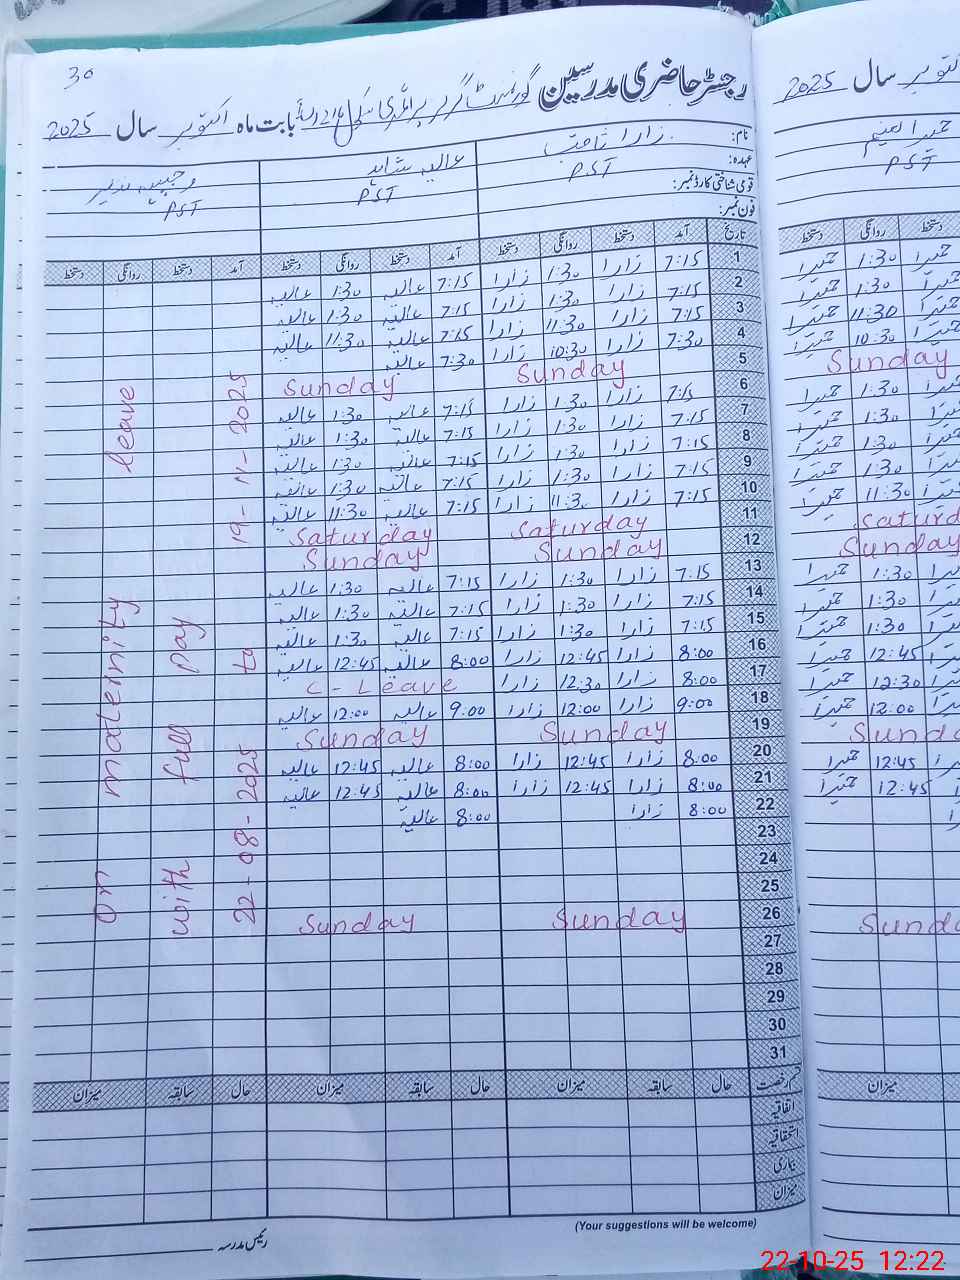 30
رجسٹر حاضری مدرسین گورنمنٹ گرلز پرائمری سکول بابت ماہ اکتوبر سال 2025
نام: زارا عالیہ شاہد وجیہہ
عہدہ: PST PST PST
قومی شناختی کارڈ نمبر:
فون نمبر:
تاریخ آمد دستخط روانگی دستخط آمد دستخط روانگی دستخط آمد دستخط روانگی دستخط
1 7:15 زارا 1:30 زارا 7:15 عالیہ 1:30 عالیہ
2 7:15 زارا 1:30 زارا 7:15 عالیہ 1:30 عالیہ
3 7:15 زارا 11:30 زارا 7:15 عالیہ 11:30 عالیہ
4 7:30 زارا 10:30 زارا 7:30 عالیہ
5 Sunday Sunday
6 7:15 زارا 1:30 زارا 7:15 عالیہ 1:30 عالیہ
7 7:15 زارا 1:30 زارا 7:15 عالیہ 1:30 عالیہ
8 7:15 زارا 1:30 زارا 7:15 عالیہ 1:30 عالیہ
9 7:15 زارا 1:30 زارا 7:15 عالیہ 1:30 عالیہ
10 7:15 زارا 11:30 زارا 7:15 عالیہ 11:30 عالیہ
11 Saturday Saturday
12 Sunday Sunday
13 7:15 زارا 1:30 زارا 7:15 عالیہ 1:30 عالیہ
14 7:15 زارا 1:30 زارا 7:15 عالیہ 1:30 عالیہ
15 7:15 زارا 1:30 زارا 7:15 عالیہ 1:30 عالیہ
16 8:00 زارا 12:45 زارا 8:00 عالیہ 12:45 عالیہ
17 8:00 زارا 12:30 زارا C - Leave
18 9:00 زارا 12:00 زارا 9:00 عالیہ 12:00 عالیہ
19 Sunday Sunday
20 8:00 زارا 12:45 زارا 8:00 عالیہ 12:45 عالیہ
21 8:00 زارا 12:45 زارا 8:00 عالیہ 12:45 عالیہ
22 8:00 زارا 8:00 عالیہ
23
24
25
26 Sunday Sunday
27
28
29
30
31
on maternity leave
with full pay
22-08-2025 to 19-11-2025
قسم رخصت حال سابقہ میزان حال سابقہ میزان حال سابقہ میزان
اتفاقیہ
استحقاقیہ
بیماری
میزان
(Your suggestions will be welcome)
رئیس مدرسہ
اکتوبر سال 2025
حمیرا نعیم
PST
دستخط روانگی دستخط
حمیرا 1:30 حمیرا
حمیرا 1:30 حمیرا
حمیرا 11:30 حمیرا
حمیرا 10:30 حمیرا
Sunday
حمیرا 1:30
حمیرا 1:30
حمیرا 1:30
حمیرا 1:30
حمیرا 11:30
Saturd
Sunday
حمیرا 1:30
حمیرا 1:30
حمیرا 1:30
حمیرا 12:45
حمیرا 12:30
حمیرا 12:00
Sunda
حمیرا 12:45
حمیرا 12:45
Sunda
میزان
22-10-25 12:22